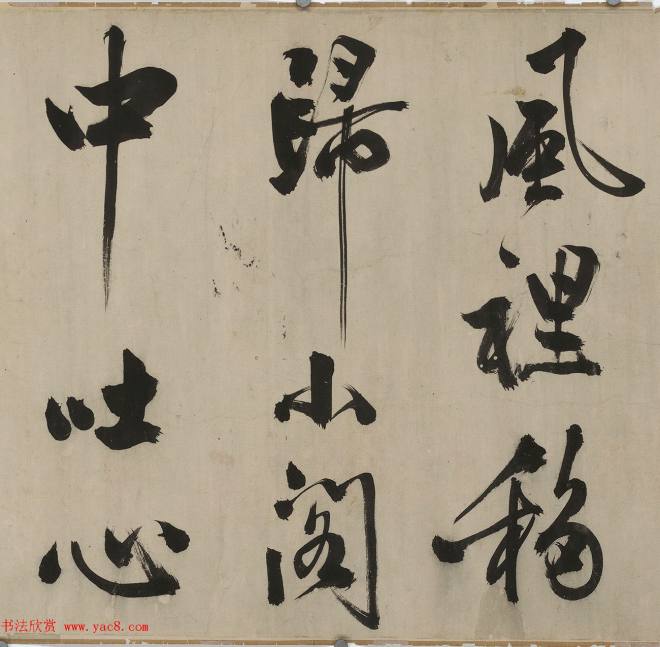 風裡移
歸小閣
中吐心
书法欣赏 www.yac8.com